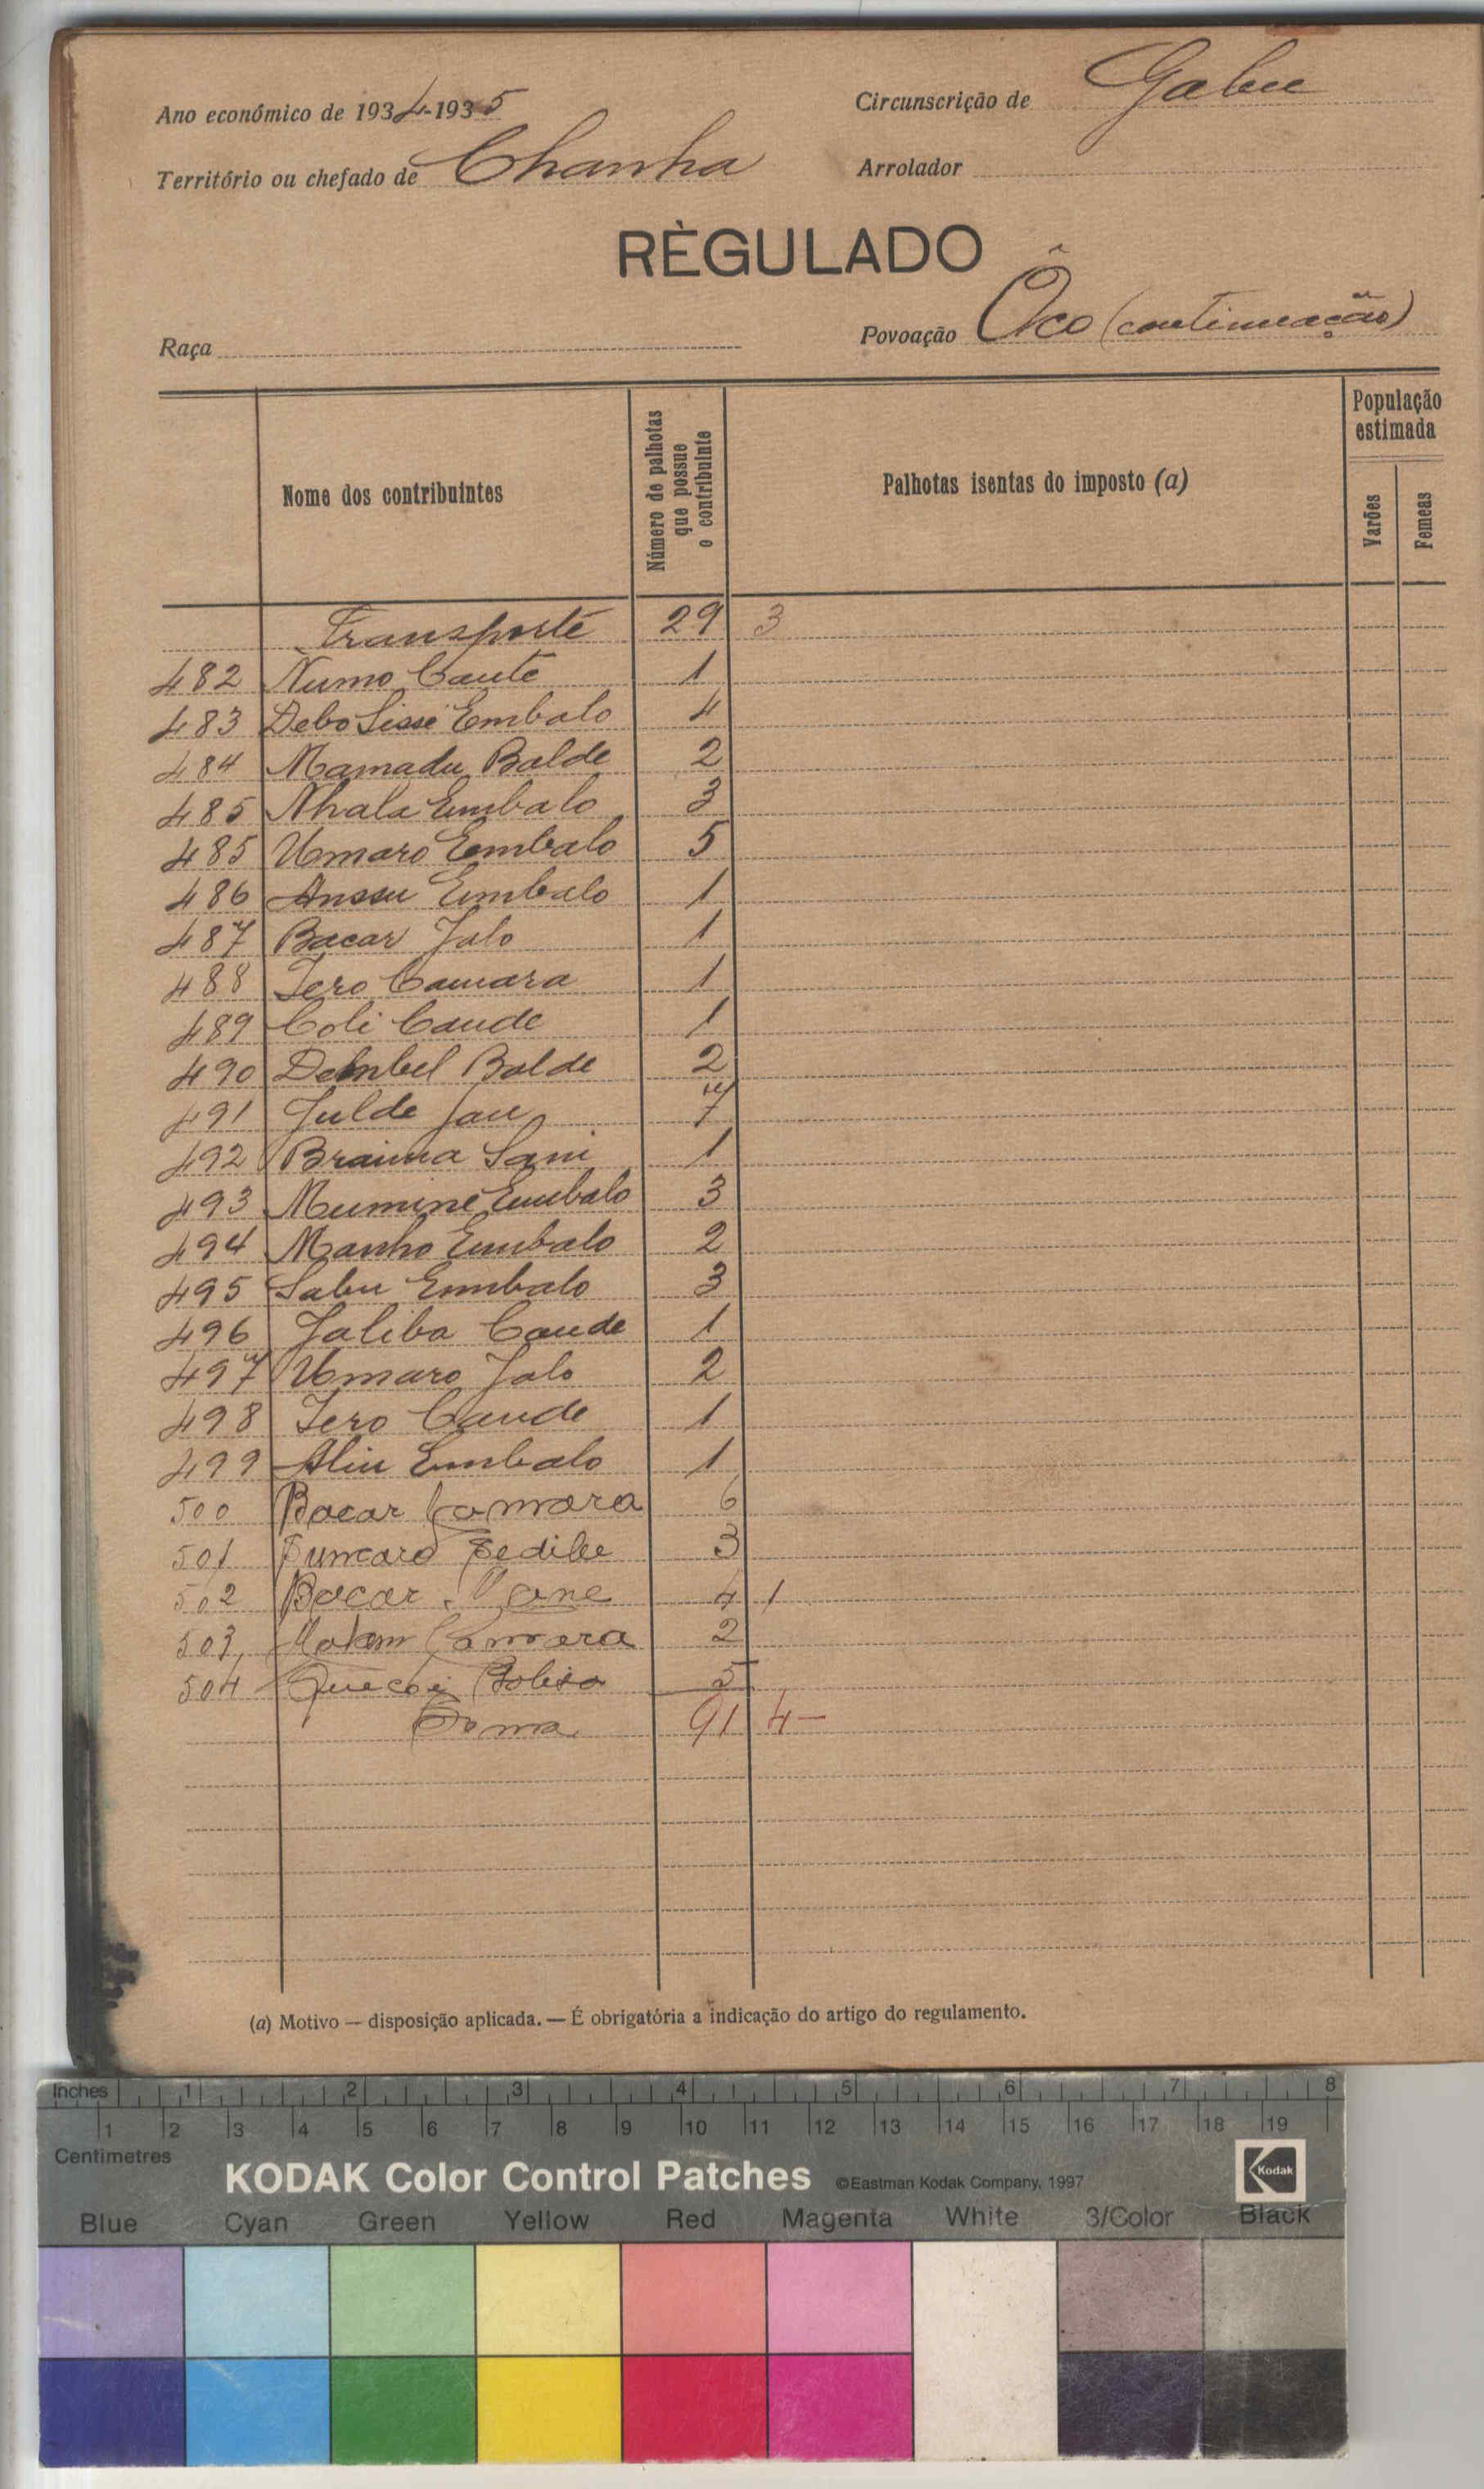 Ano económico de 1934-1935 Circunscrição de Gabu
Território ou chefado de Chanha Arrolador
RÈGULADO
Raça Povoação Ôco (continuação)
Nome dos contribuintes
Número de palhotas
que possue
o contribuinte
Palhotas isentas do imposto (a)
População
estimada
Varões
Femeas
Transporte 29 3
482 Numo Cante 1
483 Debo Sissé Embalo 4
484 Mamadu Balde 2
485 Nhala Embalo 3
485 Umaro Embalo 5
486 Anssu Embalo 1
487 Bacar Jalo 1
488 Jero Camara 1
489 Coli Cande 1
490 Dembel Balde 2
491 Julde Jau 7
492 Braima Sani 1
493 Mumine Embalo 3
494 Manho Embalo 2
495 Sabu Embalo 3
496 Jaliba Cande 1
497 Umaro Jalo 2
498 Jero Cande 1
499 Aliu Embalo 1
500 Bacar Camara 6
501 3
502 Bacar Mane 4 1
503 Camara 2
504 5
Soma 91 4
(a) Motivo — disposição aplicada. — É obrigatória a indicação do artigo do regulamento.
Inches 1 2 3 4 5 6 7 8
1 2 3 4 5 6 7 8 9 10 11 12 13 14 15 16 17 18 19
Centimetres
KODAK Color Control Patches ©Eastman Kodak Company, 1997 Kodak
Blue Cyan Green Yellow Red Magenta White 3/Color Black